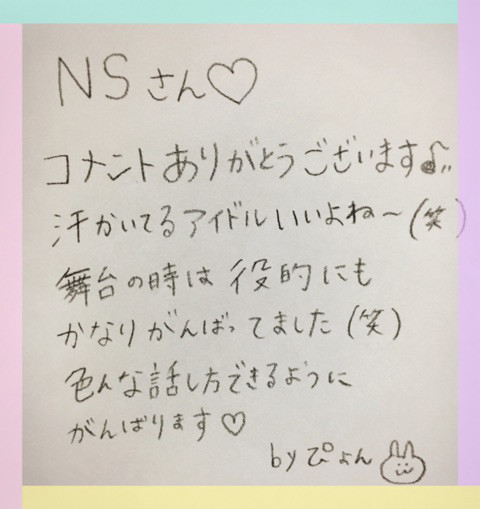 NSさん♡
コメントありがとうございます♪
汗かいてるアイドルいいよね〜(笑)
舞台の時は役的にも
かなりがんばってました(笑)
色んな話し方できるように
がんばります♡
byぴょん